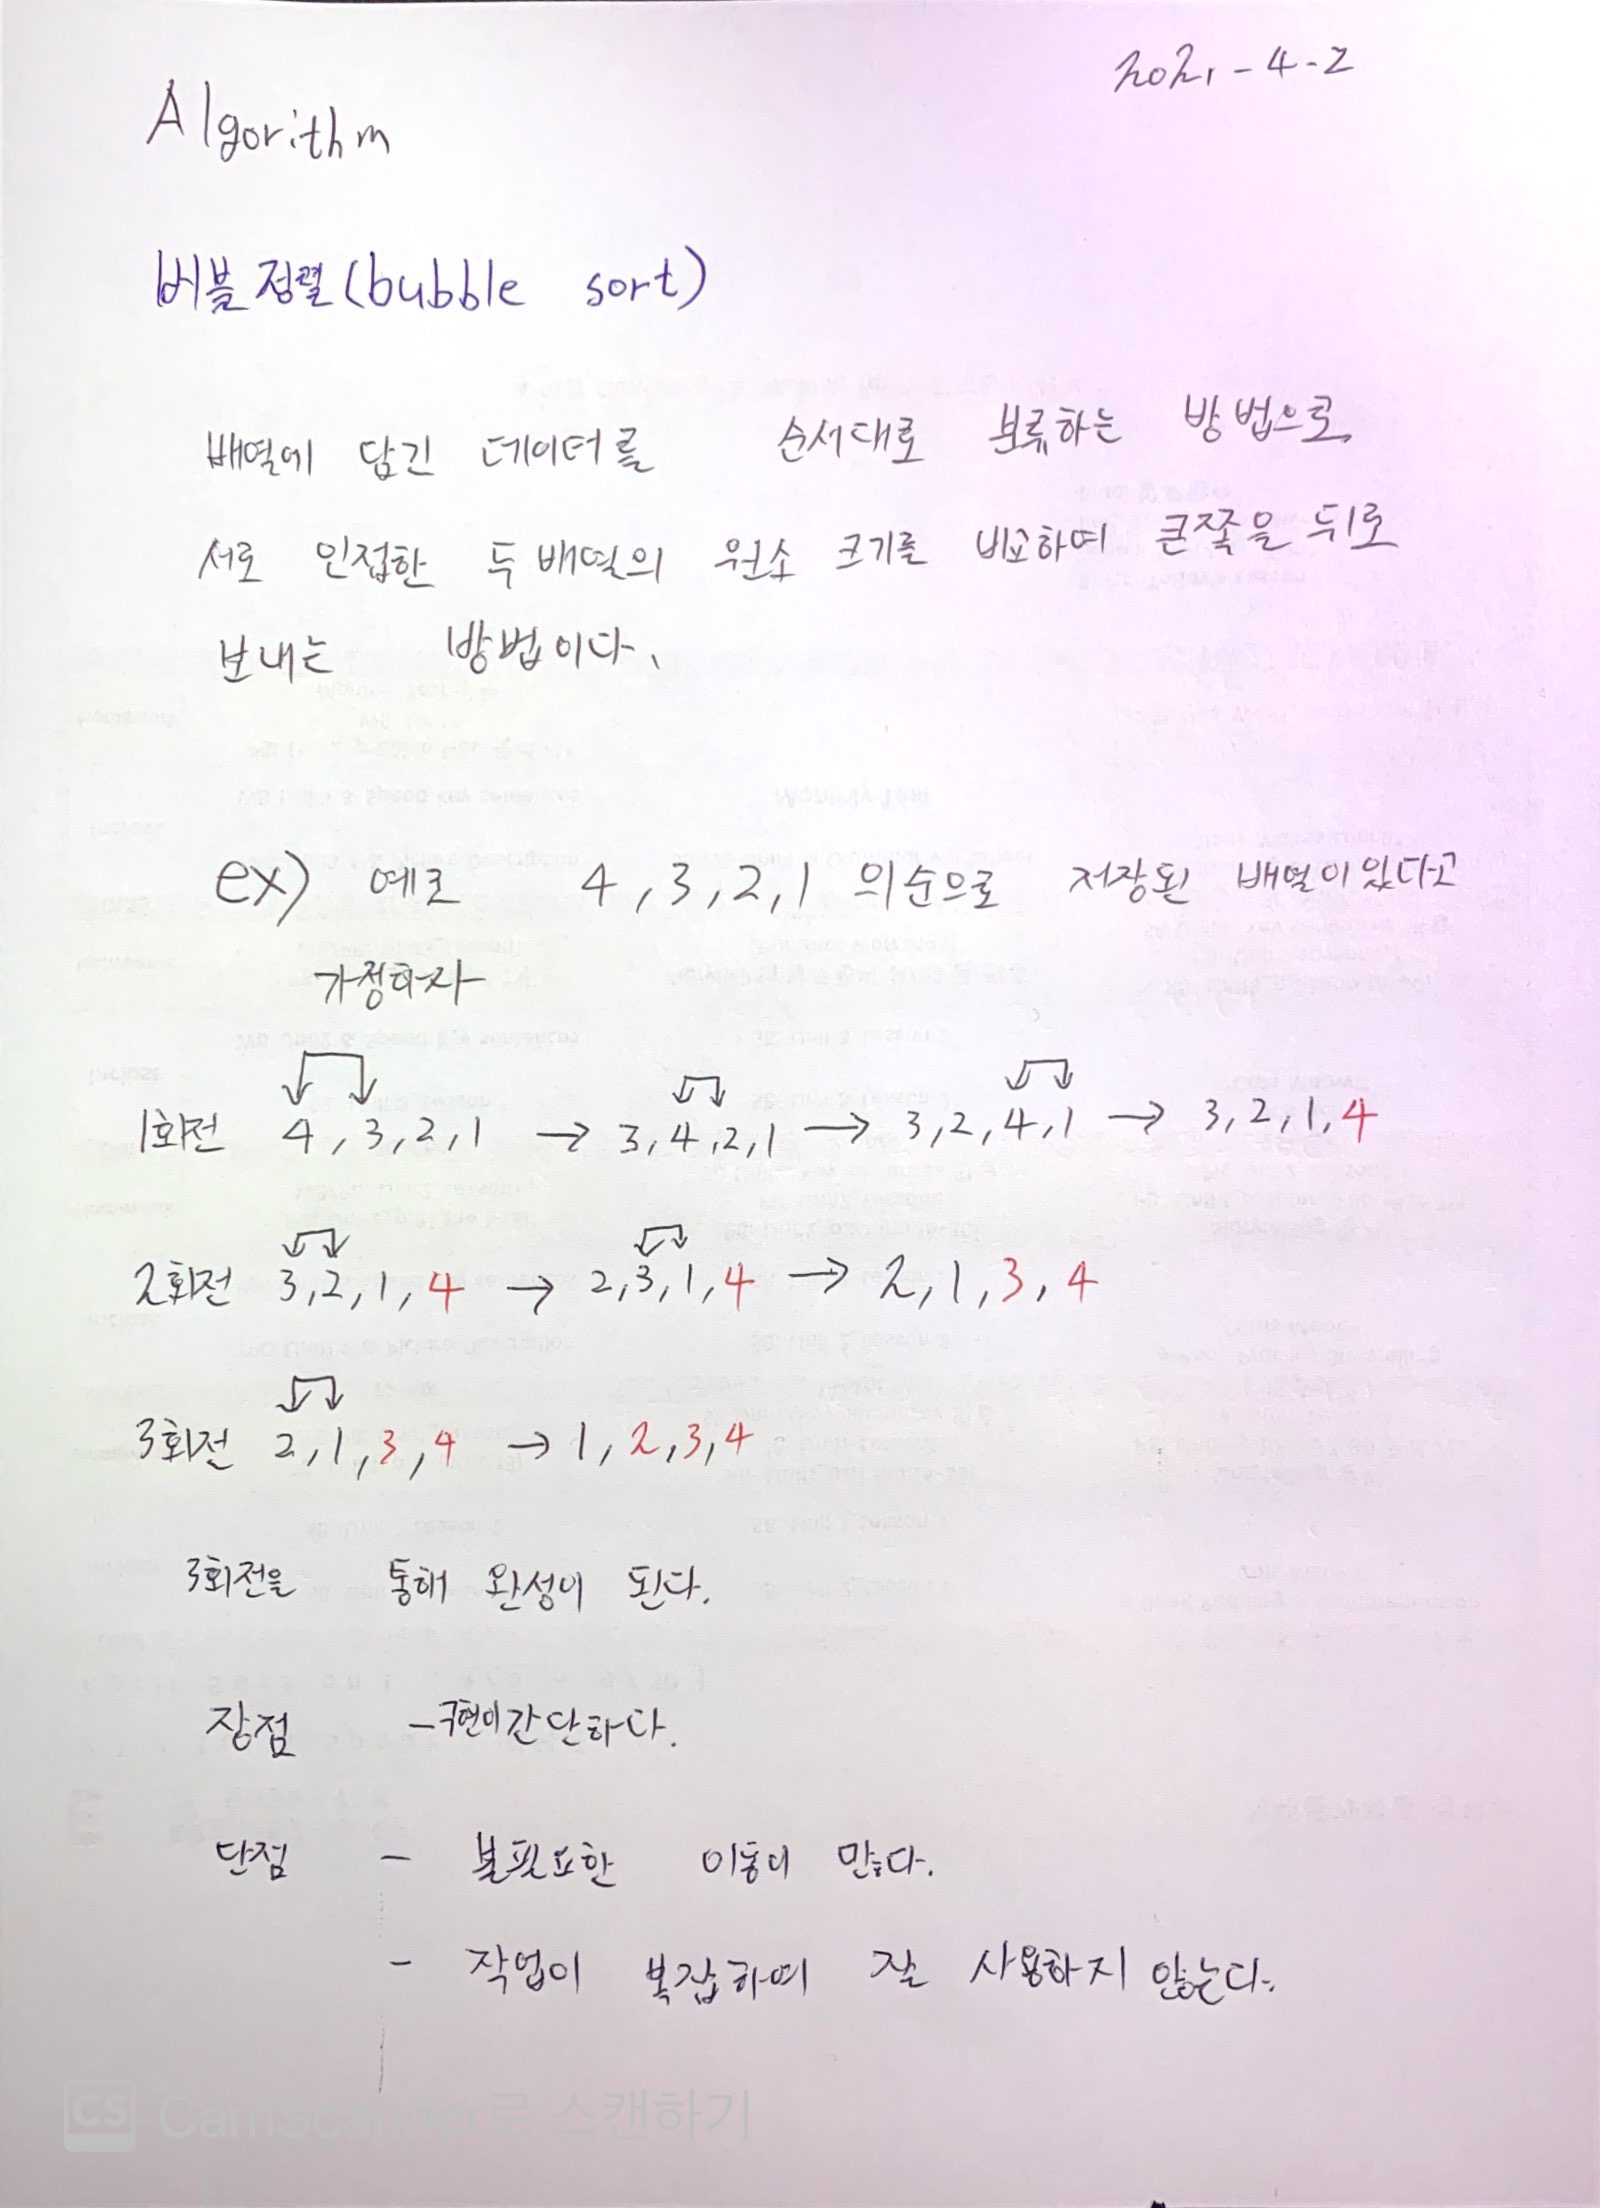 2021-4-2
Algorithm
버블정렬(bubble sort)
배열에 담긴 데이터를 순서대로 분류하는 방법으로,
서로 인접한 두 배열의 원소 크기를 비교하며 큰쪽을 뒤로
보내는 방법이다.
ex) 예로 4,3,2,1 의순으로 저장된 배열이있다고
가정하자
1회전 4,3,2,1 → 3,4,2,1 → 3,2,4,1 → 3,2,1,4
2회전 3,2,1,4 → 2,3,1,4 → 2,1,3,4
3회전 2,1,3,4 → 1,2,3,4
3회전을 통해 완성이 된다.
장점 -구현이간단하다.
단점 - 불필요한 이동이 많다.
- 작업이 복잡하여 잘 사용하지 않는다.
CS CamScanner로 스캔하기